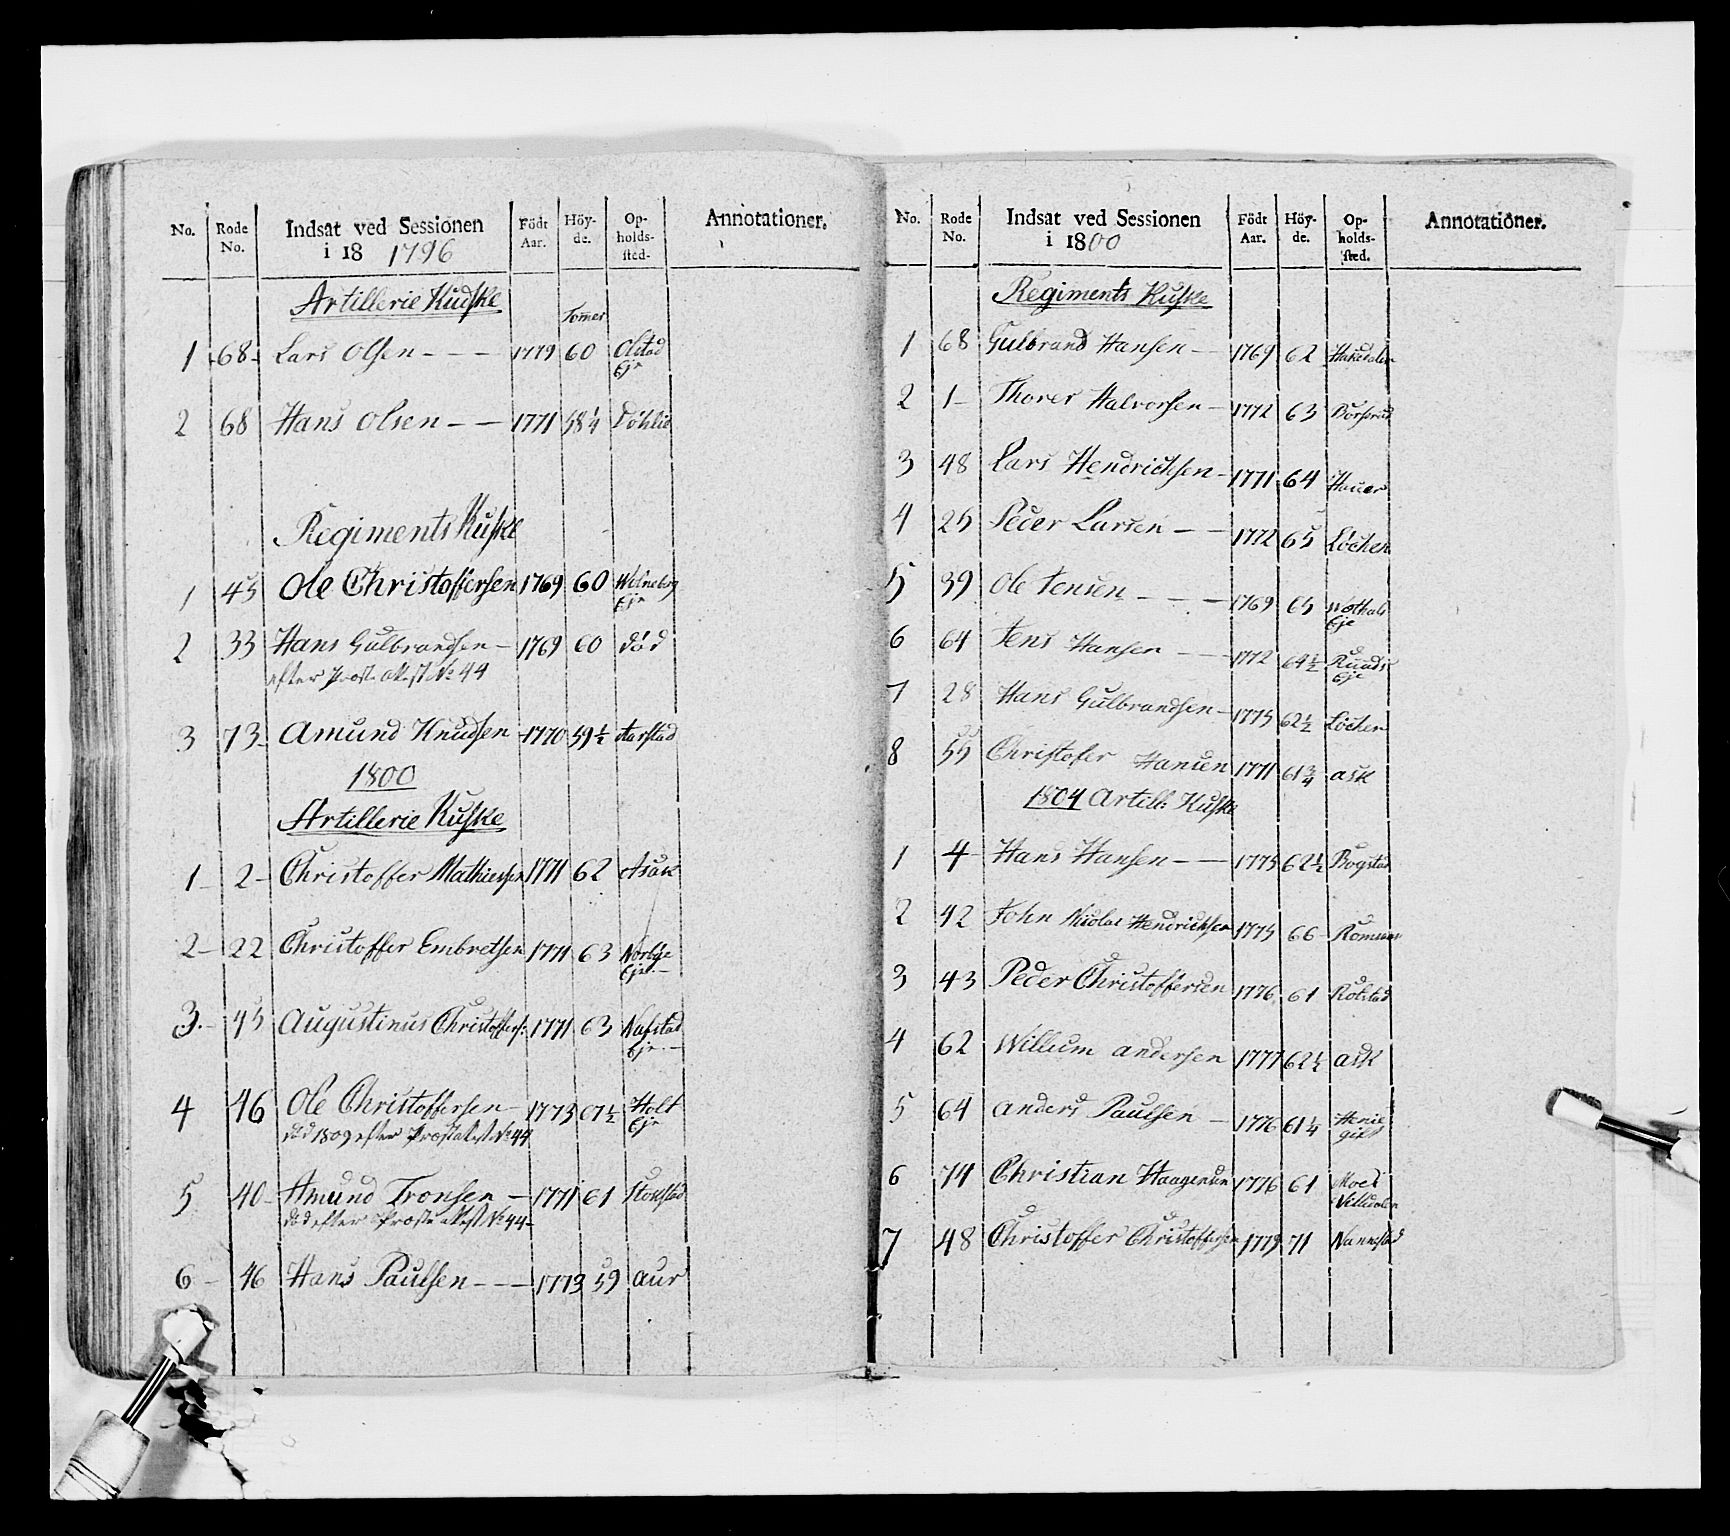 No. Rode No. Indsat ved Sessionen i 18 1796 Födt Aar. Höy-de. Op-holds-sted. Annotationer.
Artillerie Kudske
Tommer
1 68 Lars Olsen - - - 1779 60 Olstad Eje
2 68 Hans Olsen - - 1771 58 1/4 Döhlie
Regiments Kuske
1 45 Ole Christoffersen 1769 60 Eje
2 33 Hans Gulbrandsen - 1769 60 död
efter Proste Attest No 44
3 73 Amund Knudsen - 1770 59 1/2 Aarstad
1800
Artillerie Kuske
1 2 Christoffer Mathiessen 1771 62 Asack
2 22 Christoffer Embretsen 1771 63 Norbye Eje
3 45 Augustinus Christoffers: 1771 63 Nafstad Eje
4 46 Ole Christoffersen - 1773 61 1/2 Holt Eje
död 1809 efter Proste Attest No 44
5 40 Amund Tronsen - 1771 61 Stokstad
död efter Proste Attest No 44
6 46 Hans Paulsen - - - 1773 59 Aur
No. Rode No. Indsat ved Sessionen i 1800 Födt Aar. Höy-de. Op-holds-sted. Annotationer.
Regiments Kuske
1 68 Gulbrand Hansen - 1769 62 Hakedalen
2 1 Thorer Halvorsen - 1772 63
3 48 Lars Hendrichsen - 1771 64 Hauer
4 25 Peder Larsen - - 1772 65 Löchen
5 39 Ole Jensen - - - 1769 65 Eje
6 64 Jens Hansen - - 1772 64 1/2 Ruuds Eje
7 28 Hans Gulbrandsen - 1775 62 1/2 Löchen
8 55 Christofer Hansen 1771 61 3/4 Ask
1804 Artill: Kuske
1 4 Hans Hansen - - 1775 62 1/2 Bogstad
2 42 John Nicolai Hendrichsen 1775 66
3 43 Peder Christoffersen 1776 61 Rolstad
4 62 Willum Andersen 1777 62 1/2 Ask
5 64 Anders Paulsen - 1776 61 1/4
6 74 Christian Haagensen 1776 61 Moe i
7 48 Christoffer Christoffersen 1779 71 Nannestad